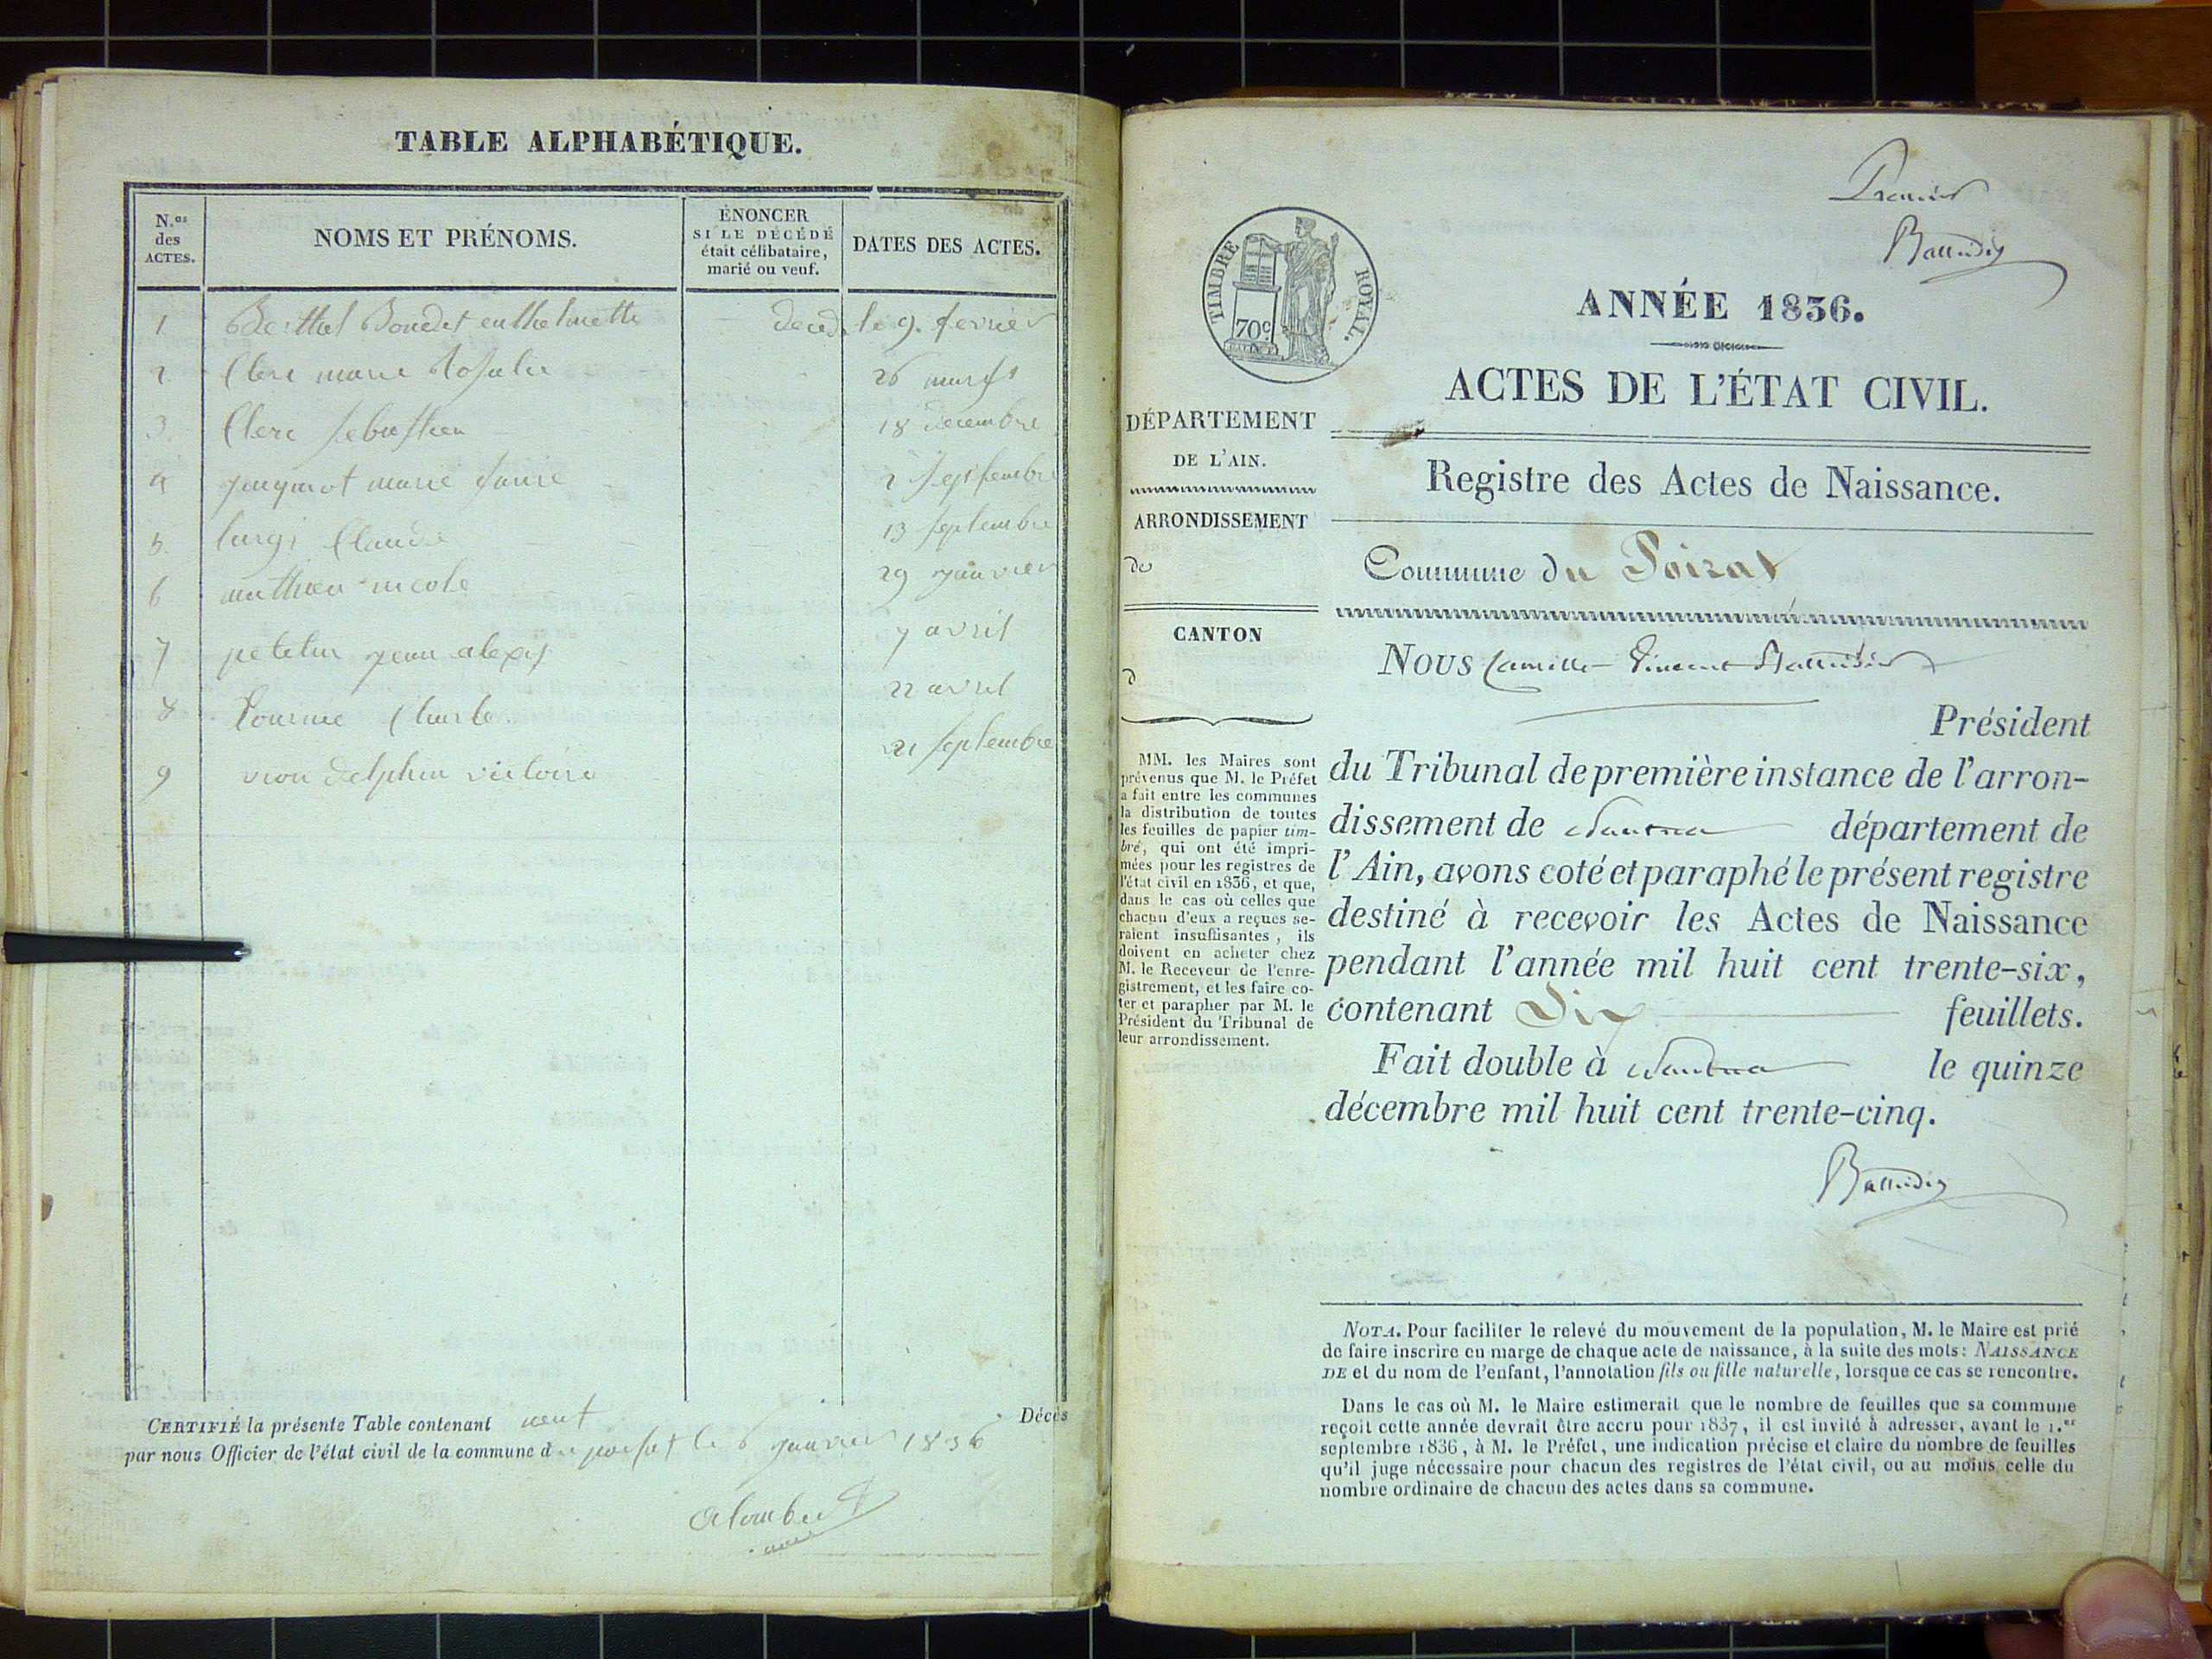 TABLE ALPHABÉTIQUE.
N.os des ACTES.
NOMS ET PRÉNOMS.
ÉNONCER
SI LE DÉCÉDÉ
était célibataire,
marié ou veuf.
DATES DES ACTES.
1. Berthet décéd. le 9. fevrier
2. Clerc marie Rosalie 26
3. Clerc sebastien 18 decembre
4 marie 2 septembre
5. Claude 13 septembre
6 mathieu nicole 29 janvier
7 jean alexis 7 avril
8 22 avril
9 delphin victoire 21 septembre
CERTIFIÉ la présente Table contenant neuf Décès
par nous Officier de l'état civil de la commune du poisat le 6 janvier 1836
Premier
TIMBRE ROYAL.
70c
ANNÉE 1836.
ACTES DE L'ÉTAT CIVIL.
DÉPARTEMENT
DE L'AIN.
ARRONDISSEMENT
de
CANTON
d
MM. les Maires sont
prévenus que M. le Préfet
a fait entre les communes
la distribution de toutes
les feuilles de papier tim-
bré, qui ont été impri-
mées pour les registres de
l'état civil en 1836, et que,
dans le cas où celles que
chacun d'eux a reçues se-
raient insuffisantes, ils
doivent en acheter chez
M. le Receveur de l'enre-
gistrement, et les faire co-
ter et parapher par M. le
Président du Tribunal de
leur arrondissement.
Registre des Actes de Naissance.
Commune du Poizat
NOUS Camille Vincent
Président
du Tribunal de première instance de l'arron-
dissement de Nantua département de
l'Ain, avons coté et paraphé le présent registre
destiné à recevoir les Actes de Naissance
pendant l'année mil huit cent trente-six,
contenant Dix feuillets.
Fait double à Nantua le quinze
décembre mil huit cent trente-cinq.
NOTA. Pour faciliter le relevé du mouvement de la population, M. le Maire est prié
de faire inscrire en marge de chaque acte de naissance, à la suite des mots: NAISSANCE
DE et du nom de l'enfant, l'annotation fils ou fille naturelle, lorsque ce cas se rencontre.
Dans le cas où M. le Maire estimerait que le nombre de feuilles que sa commune
reçoit cette année devrait être accru pour 1837, il est invité à adresser, avant le 1.er
septembre 1836, à M. le Préfet, une indication précise et claire du nombre de feuilles
qu'il juge nécessaire pour chacun des registres de l'état civil, ou au moins celle du
nombre ordinaire de chacun des actes dans sa commune.